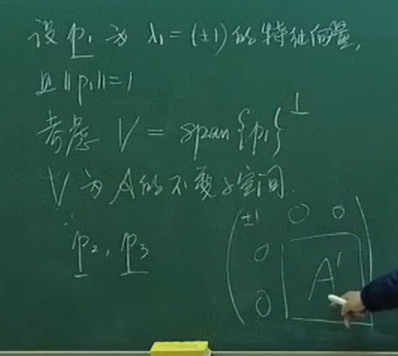 设 p₁ 为 λ₁ = (±1) 的特征向量,
且 ‖p₁‖ = 1
考虑 V = span{p₁}^⊥
V 为 A 的不变子空间.
p₂, p₃
±1 0 0
0 A'
0